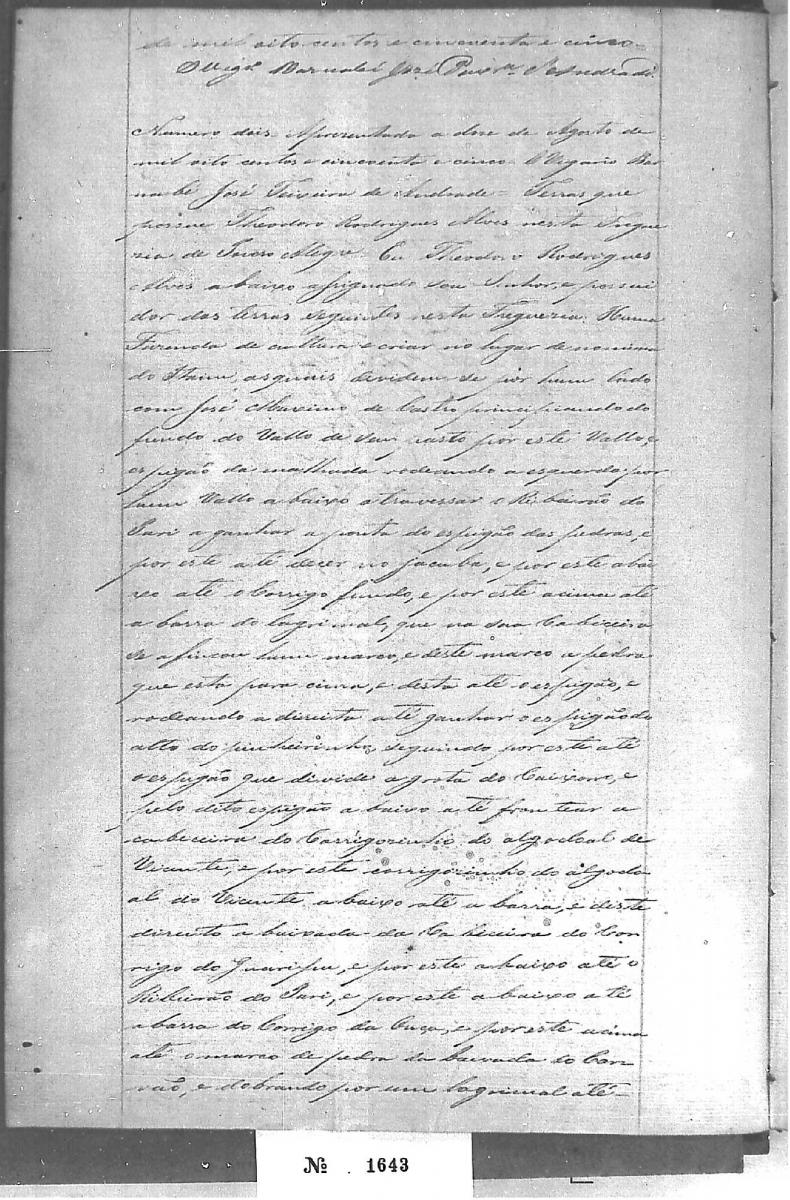 de mil oito centos e cincoenta e cinco =
O Vigrº Barnabé José Teixrª d'Andrade.
Numero dois. Apresentado a dose de Agosto de
mil oito centos e cincoenta e cinco. O Vigario Bar
nabé José Teixeira de Andrade = Terras que
possue Theodoro Rodrigues Alves nesta Fregue
zia de Pouso Alegre. Eu Theodoro Rodrigues
Alves a baixo assignado sou Senhor, e possui
dor das terras seguintes nesta Freguezia. Huma
Fazenda de cultura e criar no lugar denomina
do Itaim, as quais devidem-se por hum lado
com José Maximo de Castro principiando do
fundo do Vallo de seu pasto por este Vallo, e
espigão da malhada rodeando a esquerda por
hum Vallo a baixo atravessar o Ribeirão do
Pari a ganhar a ponta do espigão das pedras, e
por este até decer no jacuba, e por este abai
xo até o Corrigo fundo, e por este acima até
a barra do lagrimal, que na sua Cabiceira
se a fincou hum marco, e deste marco a pedra
que esta para cima, e desta até o espigão, e
rodeando a direita até ganhar o espigão do
alto do pinheirinho, seguindo por este até
o espigão que divide a grota do Caixorro, e
pelo dito espigão a baixo até frontear a
cabeceira do Corrigozinho do algodoal de
Vicente, e por este corrigozinho do algodo
al do Vicente a baixo até a barra, e deste
direito a baixada da Cabiceira do Cor
rigo do Guaripu, e por este a baixo até o
Ribeirão do Pari, e por este a baixo até
a barra do Corrigo da Onça, e por este acima
até o marco de pedra da baixada do
e dobrando por um lagrimal até =
Nº 1643